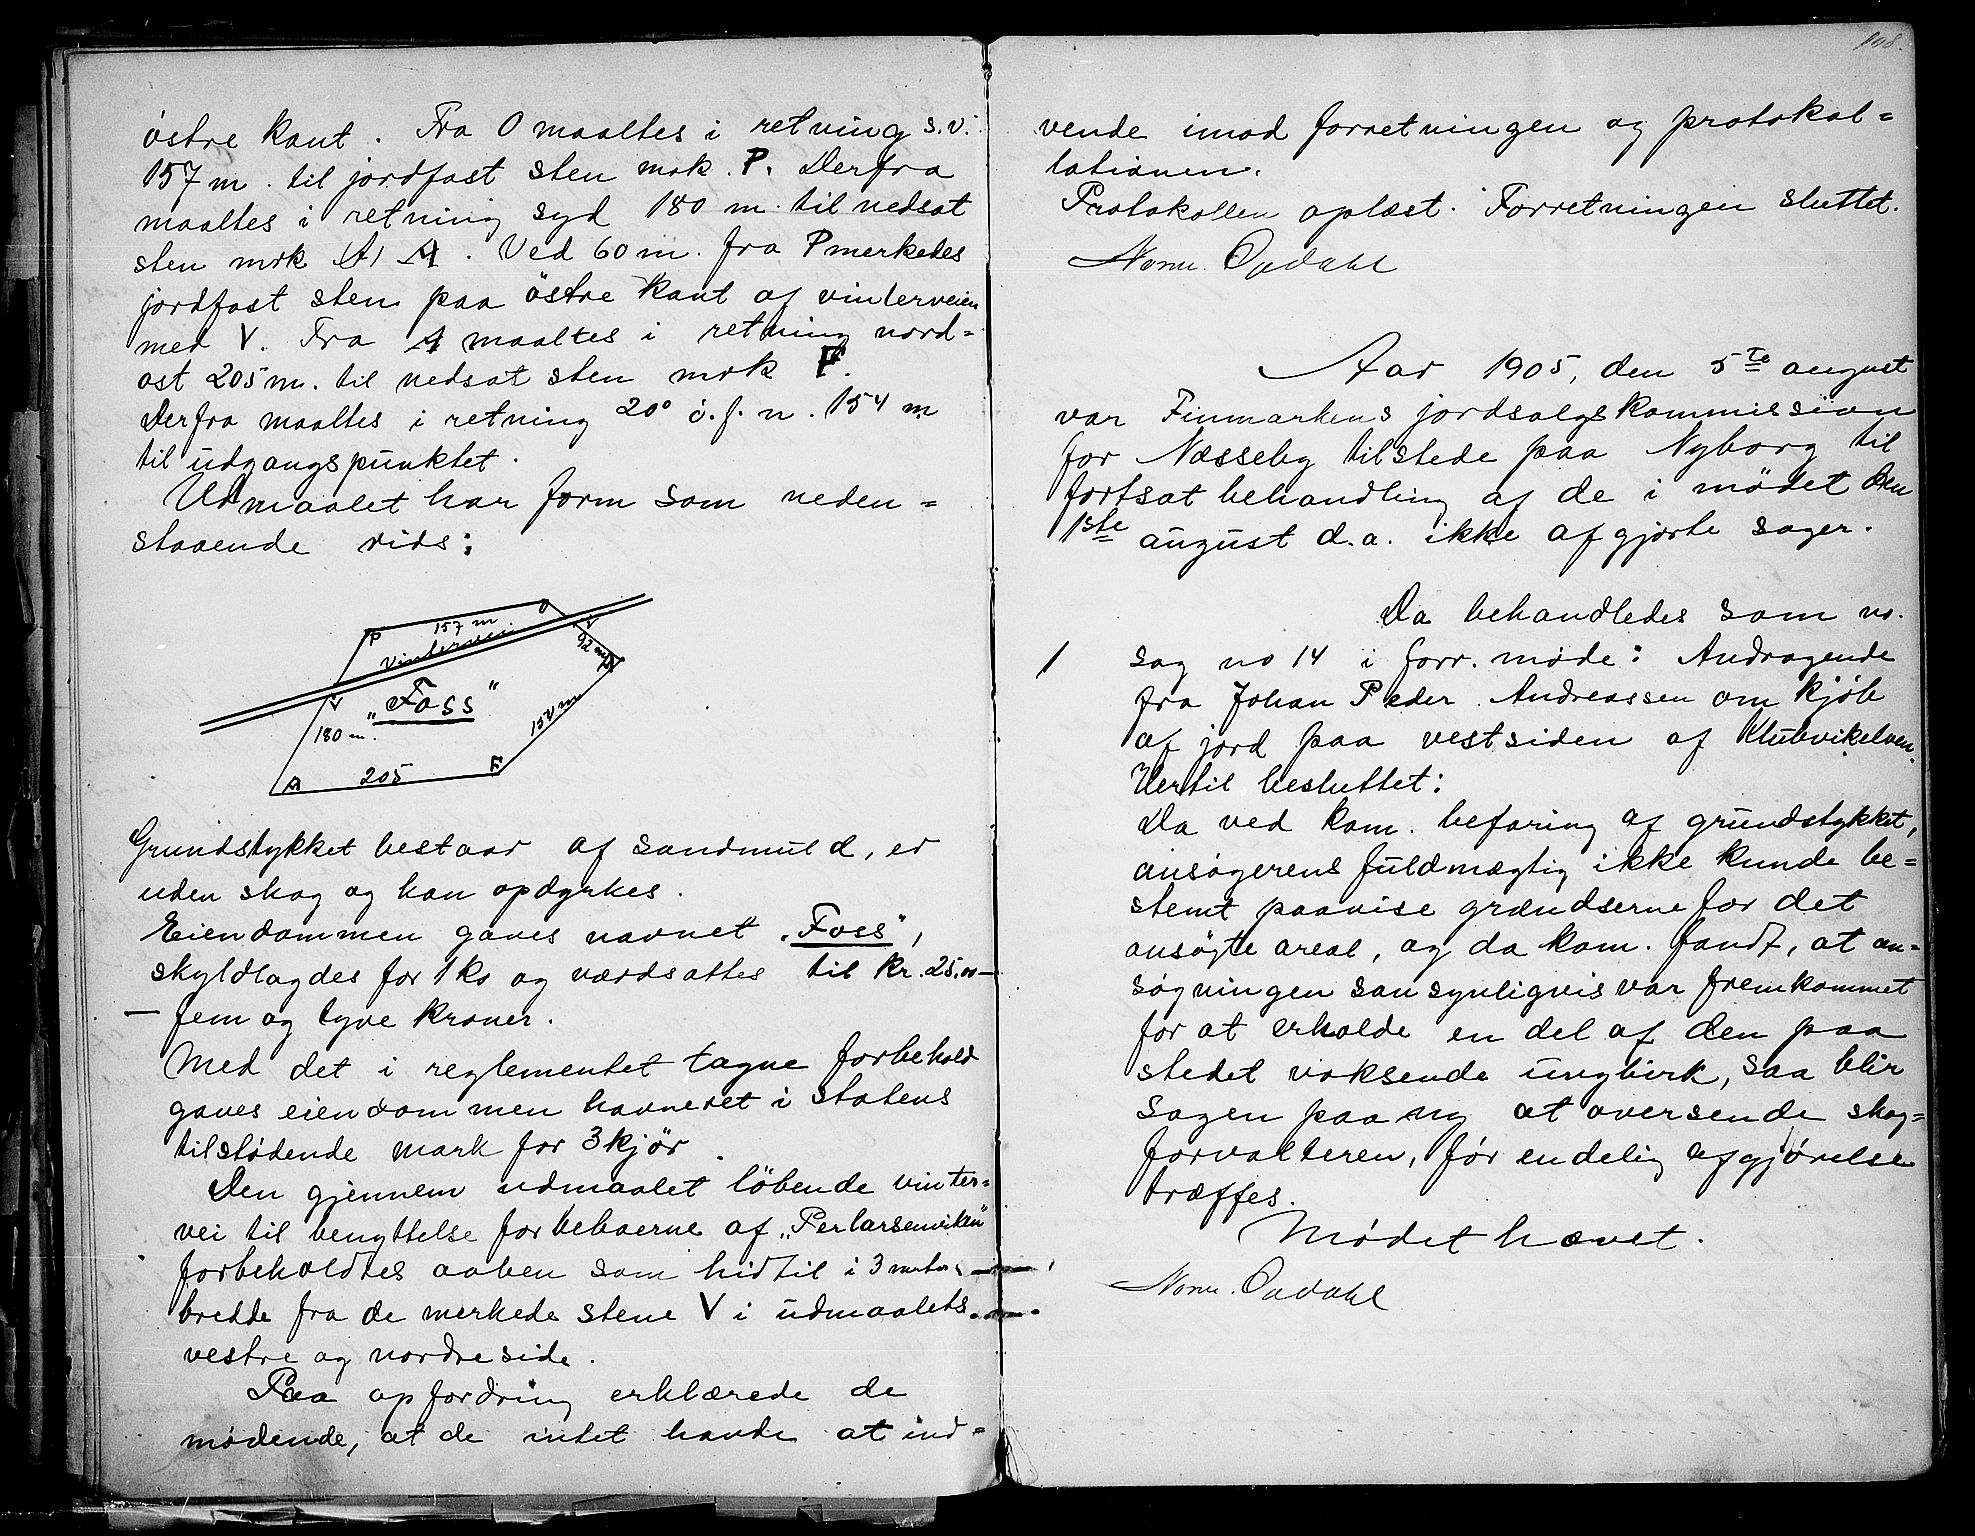 östre kant. Fra O maaltes i retning s.v.
157 m. til jordfast sten mrk. P. Derfra
maaltes i retning syd 180 m. til nedsat
sten mrk A. Ved 60 m. fra P merkedes
jordfast sten paa östre kant af vinterveien
med V. Fra A maaltes i retning nord=
ost 205 m. til nedsat sten mrk F.
Derfra maaltes i retning 20° ö.f.n. 154 m
til udgangspunktet.
Udmaalet har form som neden=
staaende rids:
P 157 m O
Vintervei V
92 m
V „Foss"
180 m. 154 m
A 205 F
Grundstykket bestaar af sandmuld, er
uden skog og kan opdyrkes.
Eiendommen gaves navnet „Foss",
skyldlagdes for 1 ks og værdsattes til kr. 25.00—
— fem og tyve kroner.
Med det i reglementet tagne forbehold
gaves eiendommen havneret i statens
tilstødende mark for 3 kjör.
Den gjennem udmaalet löbende vinter=
vei til benyttelse for beboerne af „Perlarsenviken"
forbeholdtes aaben som hidtil i 3 meters —
bredde fra de merkede stene V i udmaalets
vestre og nordre side.
Paa opfordring erklærede de
mødende, at de intet havde at ind=
108.
vende imod forretningen og protokol=
lationen.
Protokollen oplæst. Forretningen sluttet.
Norm. Opdahl
Aar 1905, den 5te august
var Finmarkens jordsalgskommission
for Næsseby tilstede paa Nyborg til
fortsat behandling af de i mødet den
1ste august d.a. ikke afgjorte sager.
Da behandledes som no.
1 sag no 14 i forr. møde: Andragende
fra Johan Peder Andreassen om kjöb
af jord paa vestsiden af Klubvikelven.
Hertil besluttet:
Da ved kom. befaring af grundstykket,
ansøgerens fuldmægtig ikke kunde be=
stemt paavise grændserne for det
ansøgte areal, og da kom. fandt, at an=
søgningen sansynligvis var fremkommet
for at erholde en del af den paa
stedet voksende ungbirk, saa blir
sagen paa ny at oversende skog=
forvalteren, før endelig afgjørelse
træffes.
Mødet hævet.
Norm. Opdahl